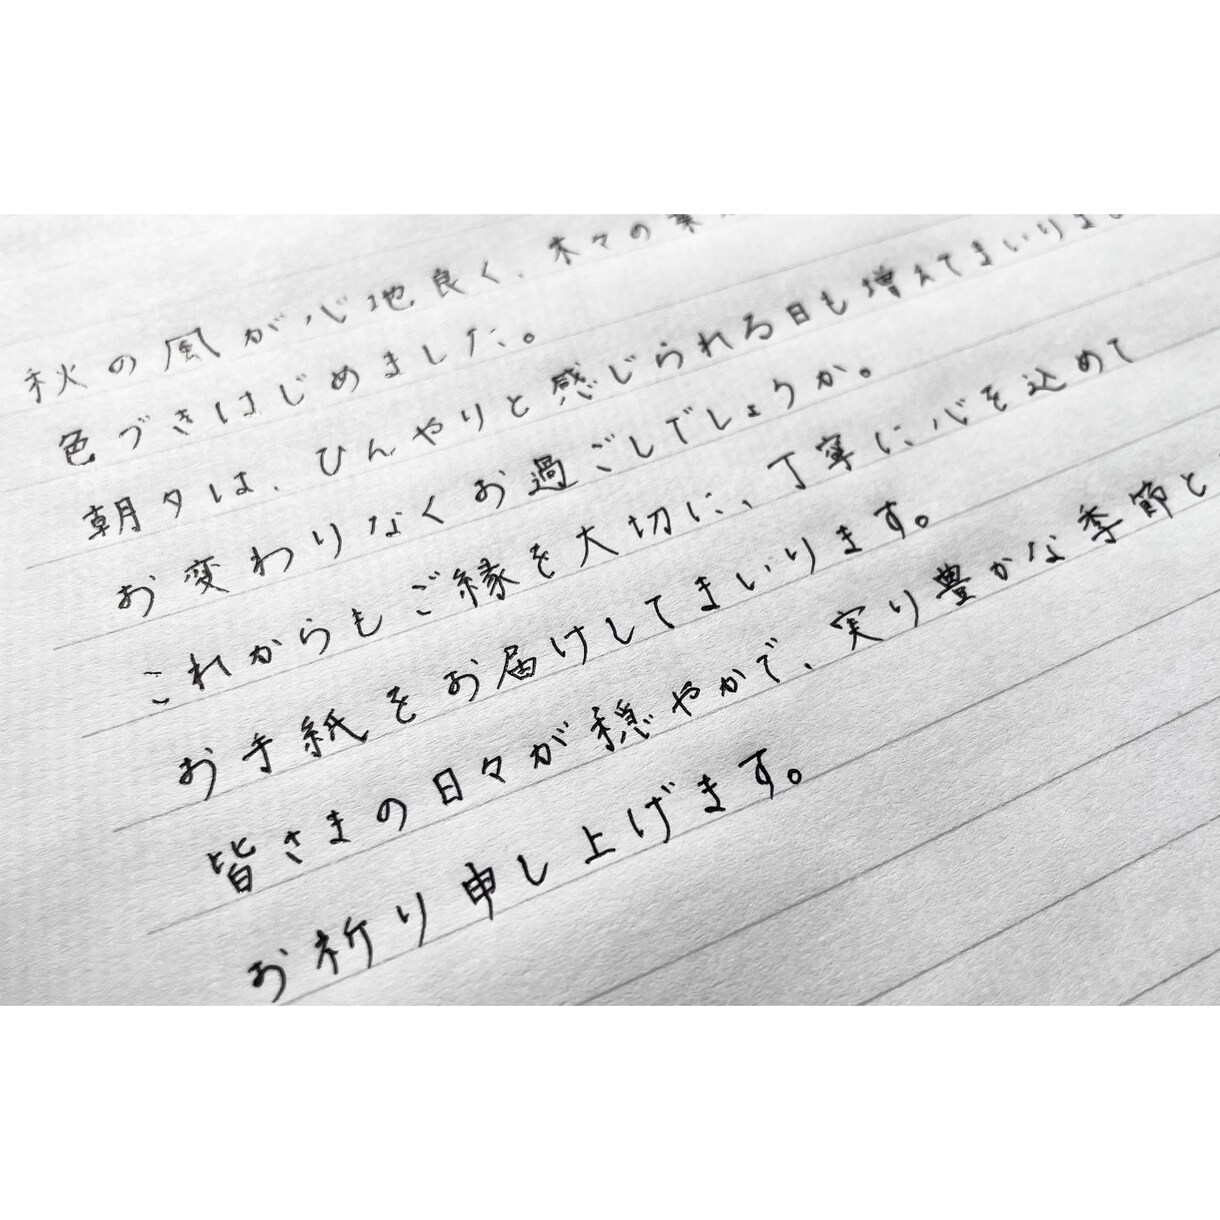 秋の風が心地良く、木々の葉
色づきはじめました。
朝夕は、ひんやりと感じられる日も増えてまいりま
お変わりなくお過ごしでしょうか。
これからもご縁を大切に、丁寧に心を込めて
お手紙をお届けしてまいります。
皆さまの日々が穏やかで、実り豊かな季節と
お祈り申し上げます。